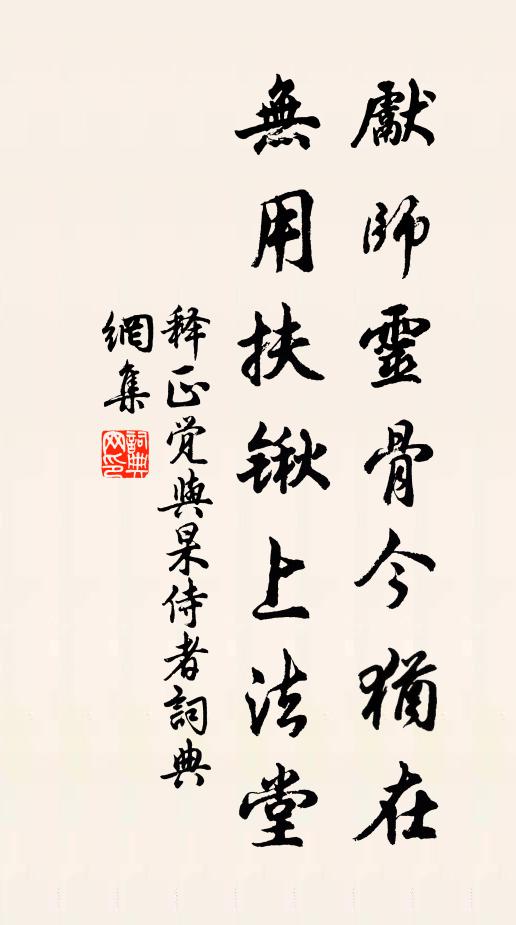 獻師靈骨今猶在
無用扶锹上法堂
释正觉與杲侍者詞典
網集
詞典
网印